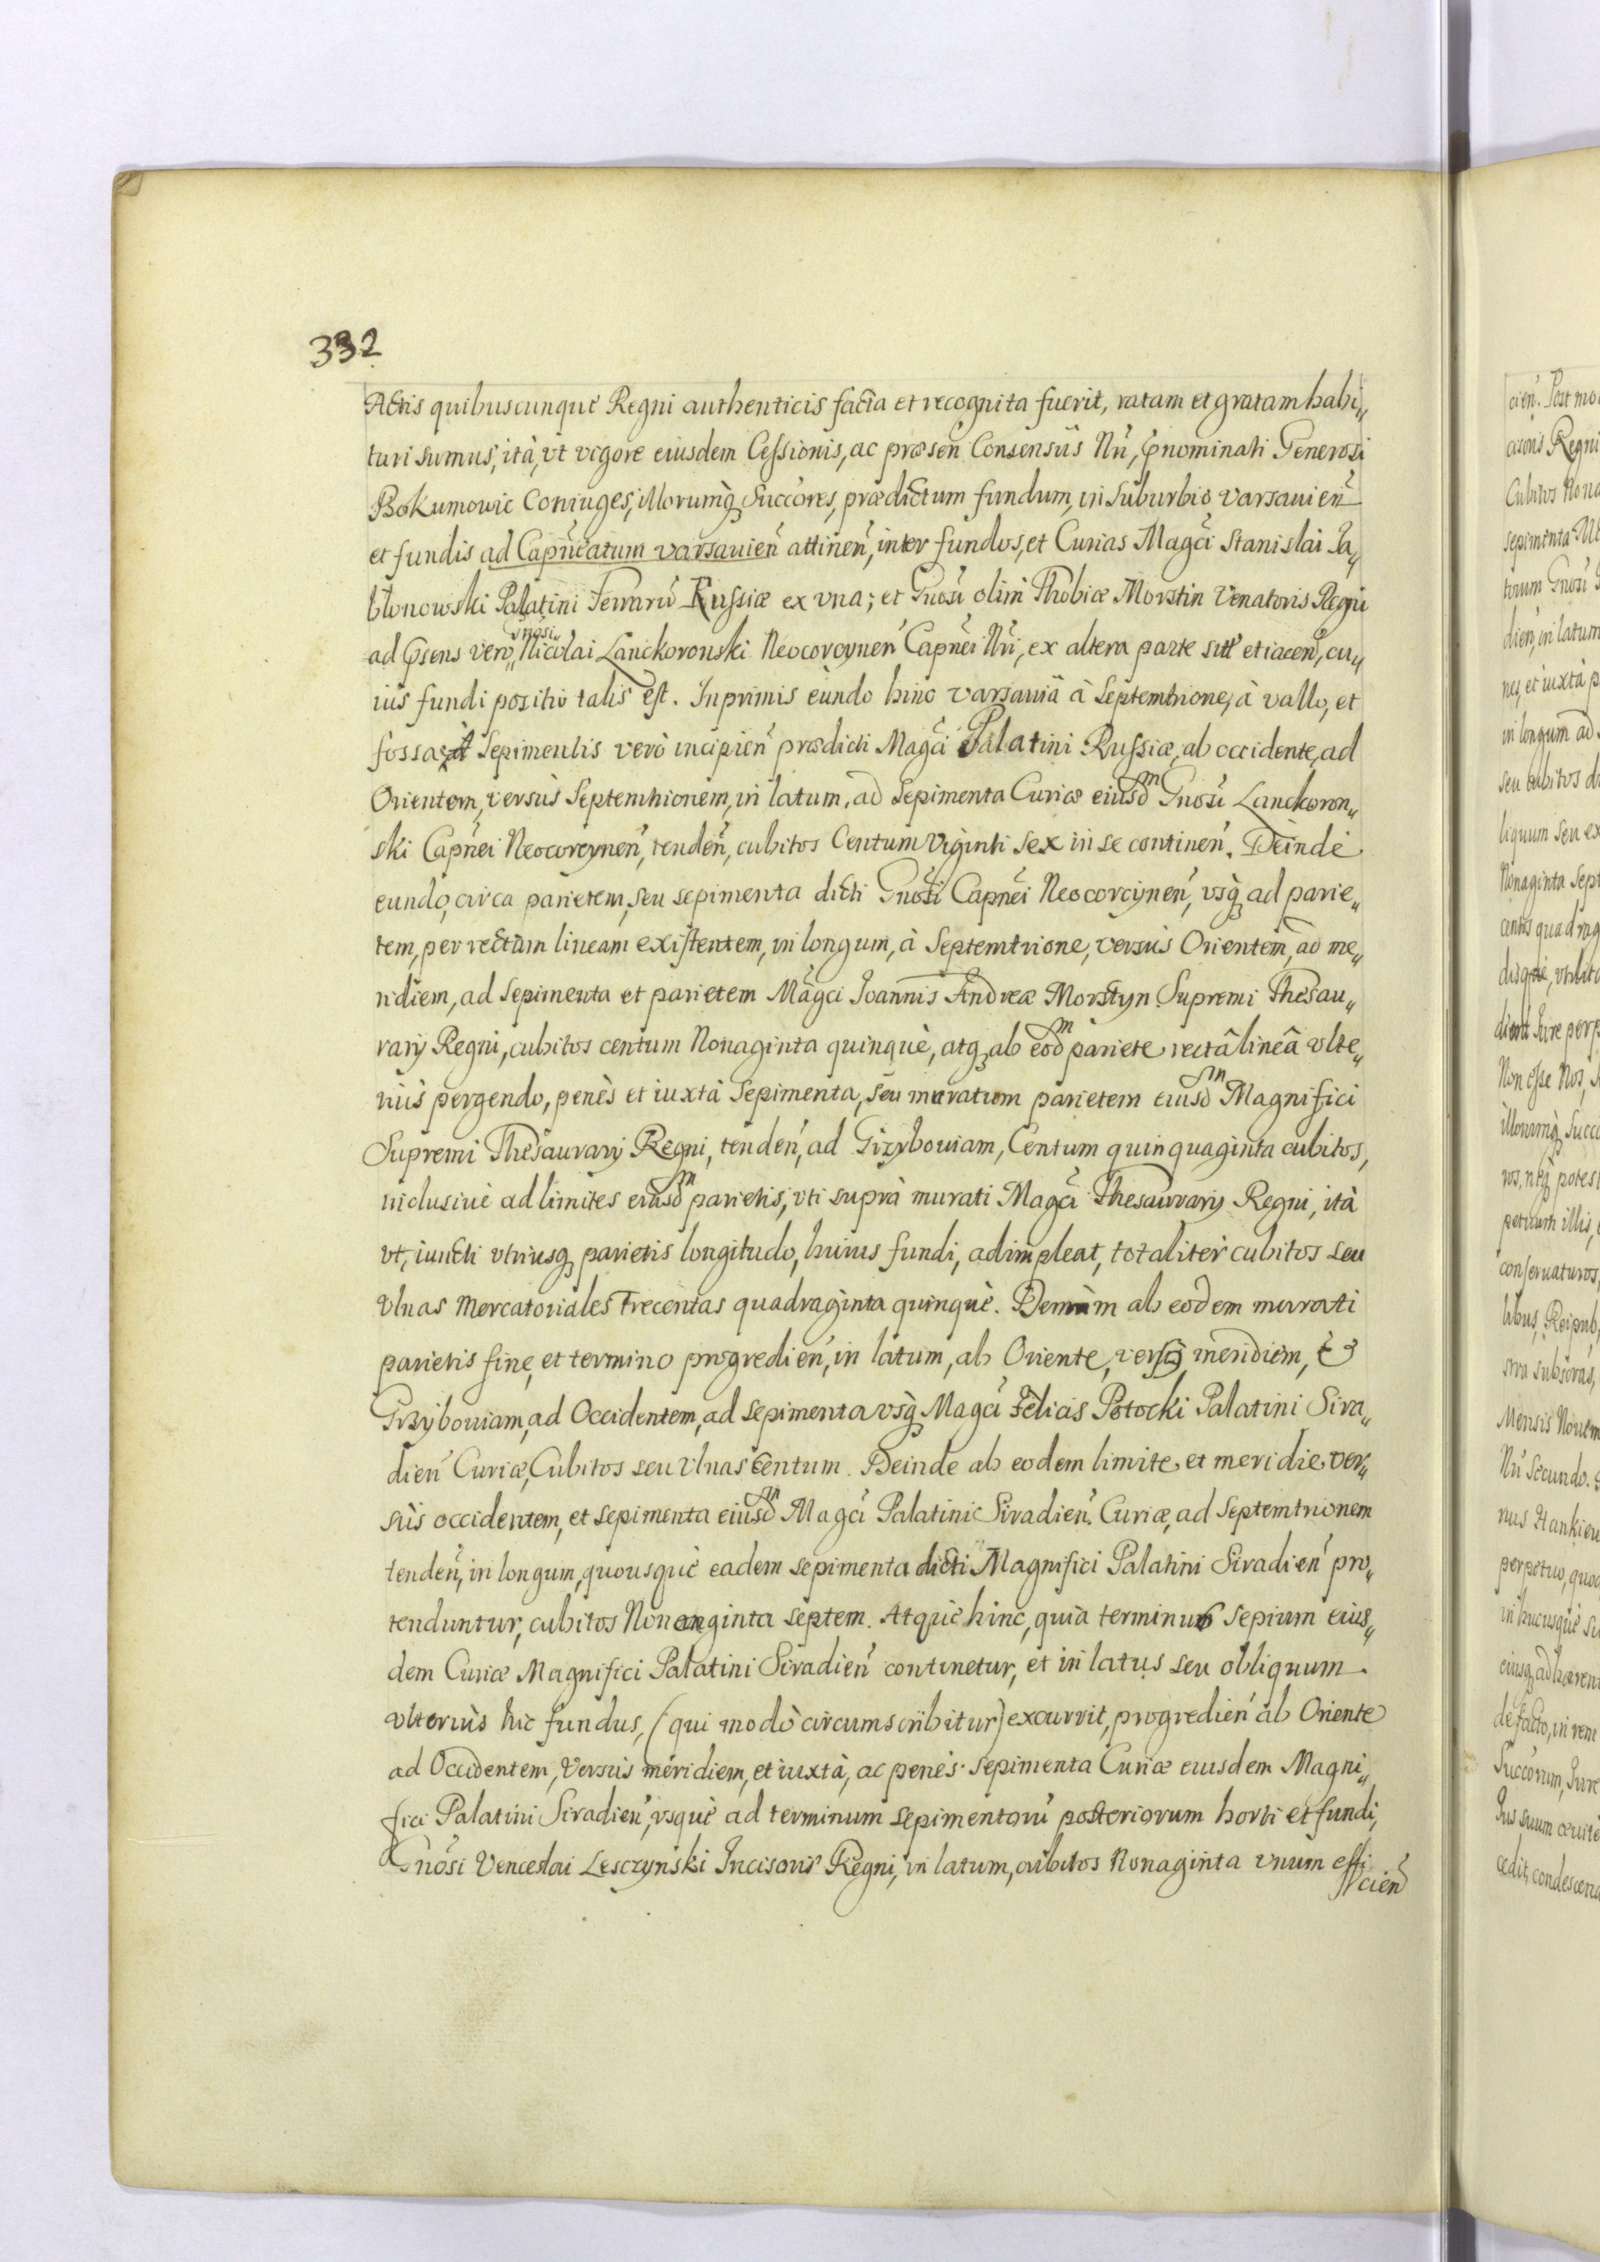 332
Actis quibuscunque Regni authenticis facta et recognita fuerit, ratam et gratam habi„
turi sumus, ità, vt vigore eiusdem Cessionis, ac præsen̄ Consensûs Nr̃i, p̃nominati Generosi
Bokumowic Coniuges, illorumq̃ Succores, prædictum fundum, in Suburbio varsauien̄
et fundis ad Capñeatum varsauien̄ attinen̄, inter fundos, et Curias Magci Stanislai Ja„
blonowski Palatini Terrarũ Russiæ ex vna; et Gnosi olim Thobiæ Morstin Venatoris Regni
ad p̃sens verò Gnosi Nicolai Lanckoronski Neocorcynen̄ Capñei Nr̃i, ex altera parte sitt et iacen̄, cu„
ius fundi positio talis est. Inprimis eundo hinc varsauiâ à Septemtrione, à vallo, et
fossa, à Sepimentis verò incipien̄ prædicti Magci Palatini Russiæ, ab occidente, ad
Orientem, versùs Septemtrionem, in latum, ad Sepimenta Curiæ eiusdm Gnosi Lanckoron„
ski Capñei Neocorcynen̄, tenden̄, cubitos Centum Viginti Sex in se continen̄. Deinde
eundo, circa parietem, seu sepimenta dicti Gnosi Capñei Neocorcijnen̄, vsq̃ ad parie„
tem, per rectam lineam existentem, in longum, à Septemtrione, versùs Orientem, ad me„
ridiem, ad Sepimenta et parietem Magci Joannis Andreæ Morstyn Supremi Thesau„
rarij Regni, cubitos centum Nonaginta quinquè, atq̃ ab eodm pariete rectâ lineâ vlte„
riùs pergendo, penès et iuxtà Sepimenta, seu muratum parietem eiusdm Magnifici
Supremi Thesaurarij Regni, tenden̄, ad Grzyboviam, Centum quinquaginta cubitos,
inclusiuè ad limites eiusdm parietis, vti suprà murati Magci Thesaurarij Regni, ità
vt, iuncti vtriusq̃ parietis longitudo, huius fundi, adimpleat, totaliter cubitos seu
Vlnas Mercatoriales Trecentas quadraginta quinquè. Demùm ab eodem murati
parietis fine, et termino progredien̄, in latum, ab Oriente, versq̃ meridiem, et
Grzyboviam, ad Occidentem, ad sepimenta vsq̃ Magci Felicis Potocki Palatini Sira„
dien̄ Curiæ, Cubitos seu Vlnas Centum. Deinde ab eodem limite et meridie ver„
sùs occidentem, et sepimenta eiusdm Magci Palatini Siradien̄. Curiæ, ad Septemtrionem
tenden̄, in longum, quousquè eadem sepimenta dicti Magnifici Palatini Siradien̄ pro„
tenduntur, cubitos Nonaginta septem. Atquè hinc, quia terminus sepium eius„
dem Curiæ Magnifici Palatini Siradien̄ continetur, et in latus seu obliquum
vlteriùs hic fundus, (qui modò circumscribitur) excurrit, progredien̄ ab Oriente
ad Occidentem, versùs meridiem, et iuxtà, ac penès sepimenta Curiæ eiusdem Magni„
fici Palatini Siradien̄, vsquè ad terminum sepimentorũ posteriorum horti et fundi,
Gnosi Venceslai Lesczynski Incisoris Regni, in latum, cubitos Nonaginta vnum effi
cien̄